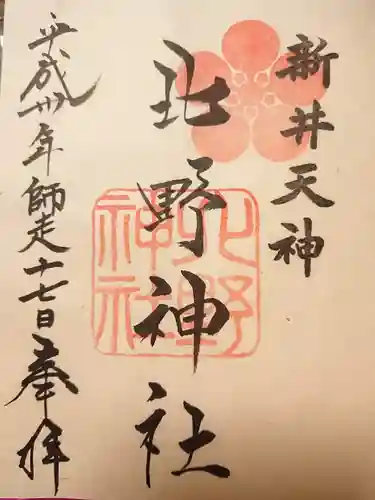 新井天神
北野神社
平成卅年師走十七日奉拝
北野
神社